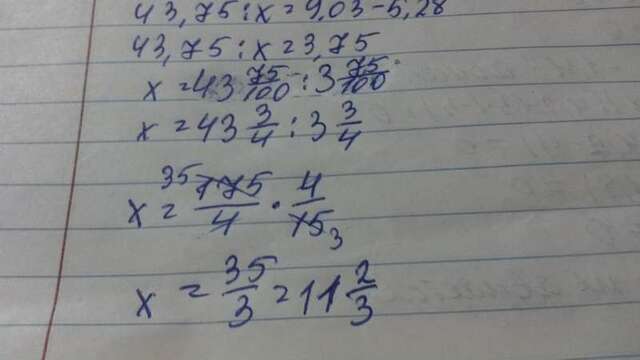 43,75:x=9,03-5,28
43,75:x=3,75
x=43 75/100 : 3 75/100
x=43 3/4 : 3 3/4
x= 35 175/4 · 4/15 3
x = 35/3 = 11 2/3